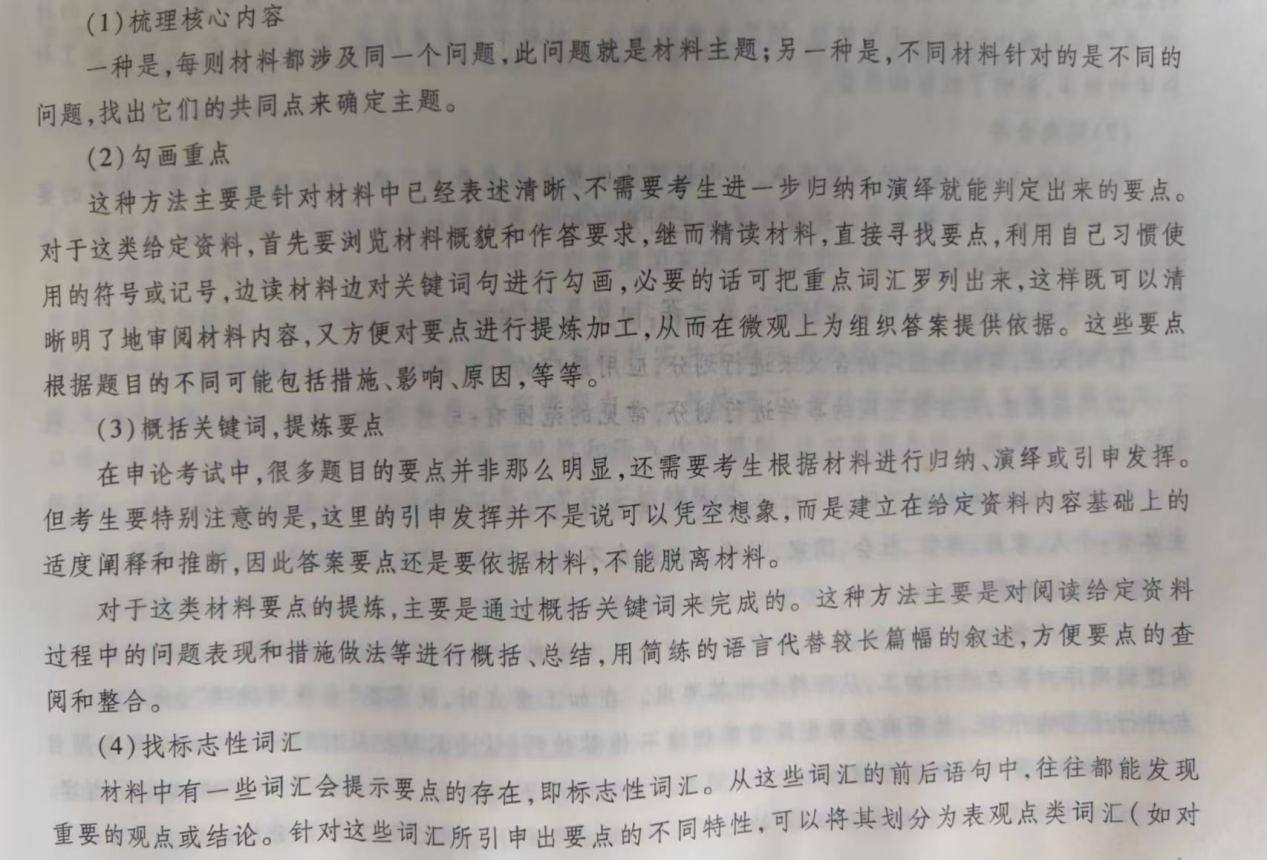 (1)梳理核心内容
一种是,每则材料都涉及同一个问题,此问题就是材料主题;另一种是,不同材料针对的是不同的
问题,找出它们的共同点来确定主题。
(2)勾画重点
这种方法主要是针对材料中已经表述清晰、不需要考生进一步归纳和演绎就能判定出来的要点。
对于这类给定资料,首先要浏览材料概貌和作答要求,继而精读材料,直接寻找要点,利用自己习惯使
用的符号或记号,边读材料边对关键词句进行勾画,必要的话可把重点词汇罗列出来,这样既可以清
晰明了地审阅材料内容,又方便对要点进行提炼加工,从而在微观上为组织答案提供依据。这些要点
根据题目的不同可能包括措施、影响、原因,等等。
(3)概括关键词,提炼要点
在申论考试中,很多题目的要点并非那么明显,还需要考生根据材料进行归纳、演绎或引申发挥。
但考生要特别注意的是,这里的引申发挥并不是说可以凭空想象,而是建立在给定资料内容基础上的
适度阐释和推断,因此答案要点还是要依据材料,不能脱离材料。
对于这类材料要点的提炼,主要是通过概括关键词来完成的。这种方法主要是对阅读给定资料
过程中的问题表现和措施做法等进行概括、总结,用简练的语言代替较长篇幅的叙述,方便要点的查
阅和整合。
(4)找标志性词汇
材料中有一些词汇会提示要点的存在,即标志性词汇。从这些词汇的前后语句中,往往都能发现
重要的观点或结论。针对这些词汇所引申出要点的不同特性,可以将其划分为表观点类词汇(如对